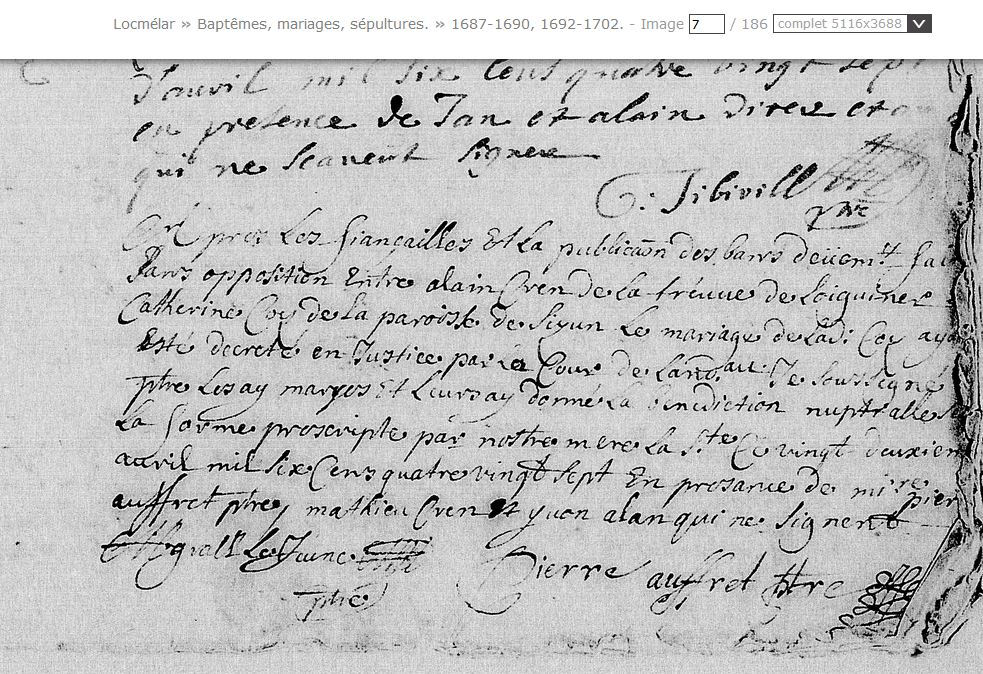 Locmélar » Baptêmes, mariages, sépultures. » 1687-1690, 1692-1702. - Image 7 / 186 complet 5116x3688
d'avril mil six Cens quatre vingt sept
en presence de Jan et alain Direz et
qui ne scavent signer
pbre
pres Les fiançailles Et La publicaōn des bans deüem.t fa
sans opposition Entre alain Cren De La tréuue de Loiquiner
Catherine Coz de La paroisse de Sizun Le mariage de Lad: Coz aya
Esté decreté en Justice par La Cour de Je soussigné
ptre Les ay maryes Et Leurs ay donné La benediction nuptialle
La forme proscripte par nostre mere La S.te Ce vingt deuxiem
auvril mil six Cens quatre vingt sept En presance de mi.re pier
auffret ptre, mathieu Cren Et yvon alan qui ne signent
Le Jeune
ptre
Pierre auffret ptre